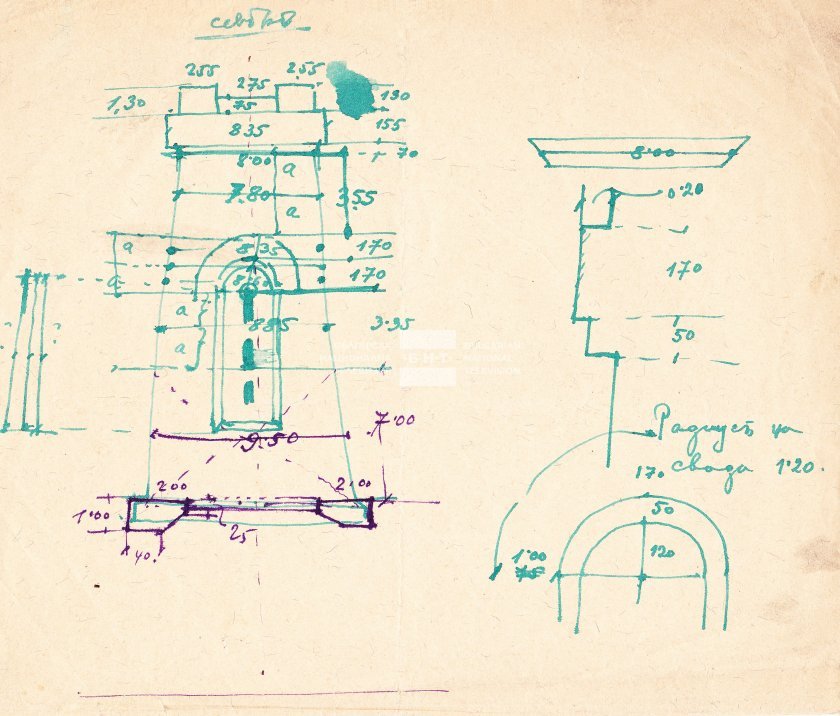 255 275 255
1,30 75 130
835 155
8.00 70
a
7.80 3.55
a
a 8.35 170
a 170
a 885 3.35
a
9.50 7.00
200 200
1.00 25
40.
8.00
0.20
170
50
Радиусъ на
свода 1.20.
170
50
1.00 120
75